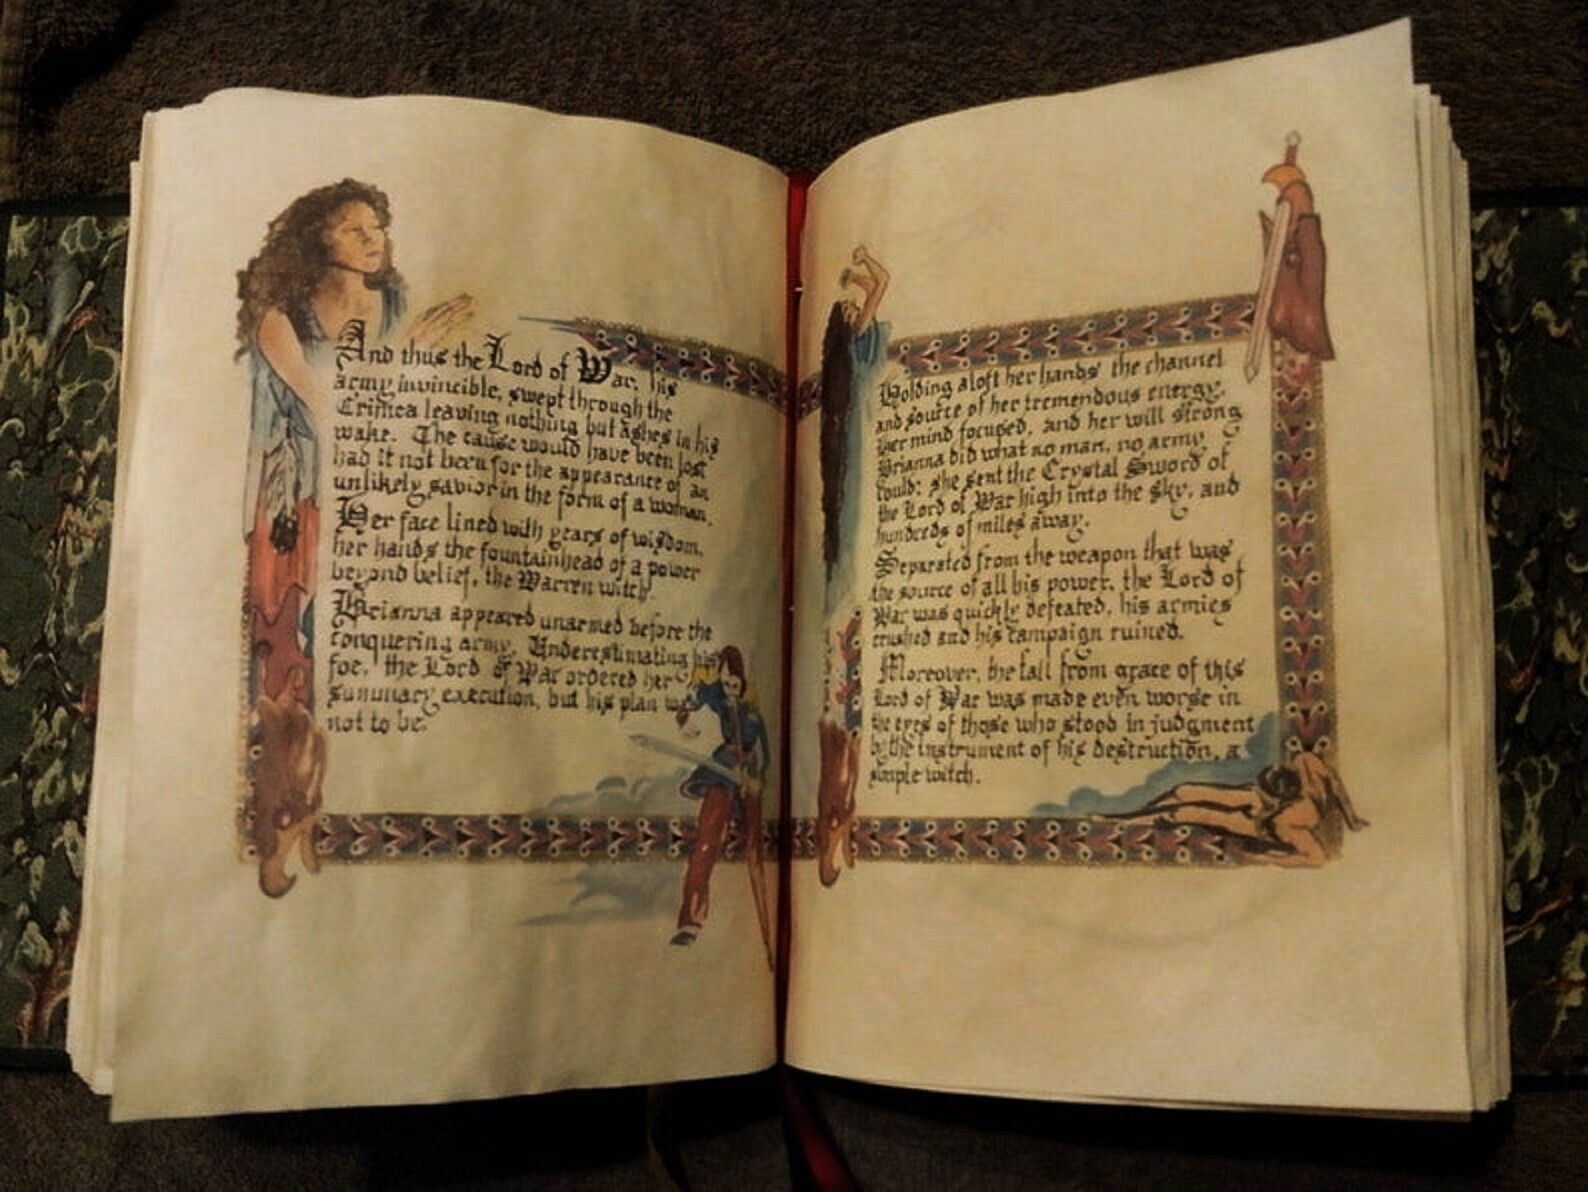 And thus the Lord of War, his
army invincible, swept through the
Crimea leaving nothing but ashes in his
wake. The cause would have been lost
had it not been for the appearance of an
unlikely savior in the form of a woman.
Her face lined with years of wisdom,
her hands the fountainhead of a power
beyond belief, the Warren witch.
Brianna appeared unarmed before the
conquering army. Underestimating his
foe, the Lord of War ordered her
summary execution, but his plan was
not to be.
Holding aloft her hands the channel
and source of her tremendous energy,
her mind focused, and her will strong
Brianna did what no man, no army
could: she sent the Crystal Sword of
the Lord of War high into the sky, and
hundreds of miles away.
Separated from the weapon that was
the source of all his power, the Lord of
War was quickly defeated, his armies
crushed and his campaign ruined.
Moreover, the fall from grace of this
Lord of War was made even worse in
the eyes of those who stood in judgment
by the instrument of his destruction, a
simple witch.